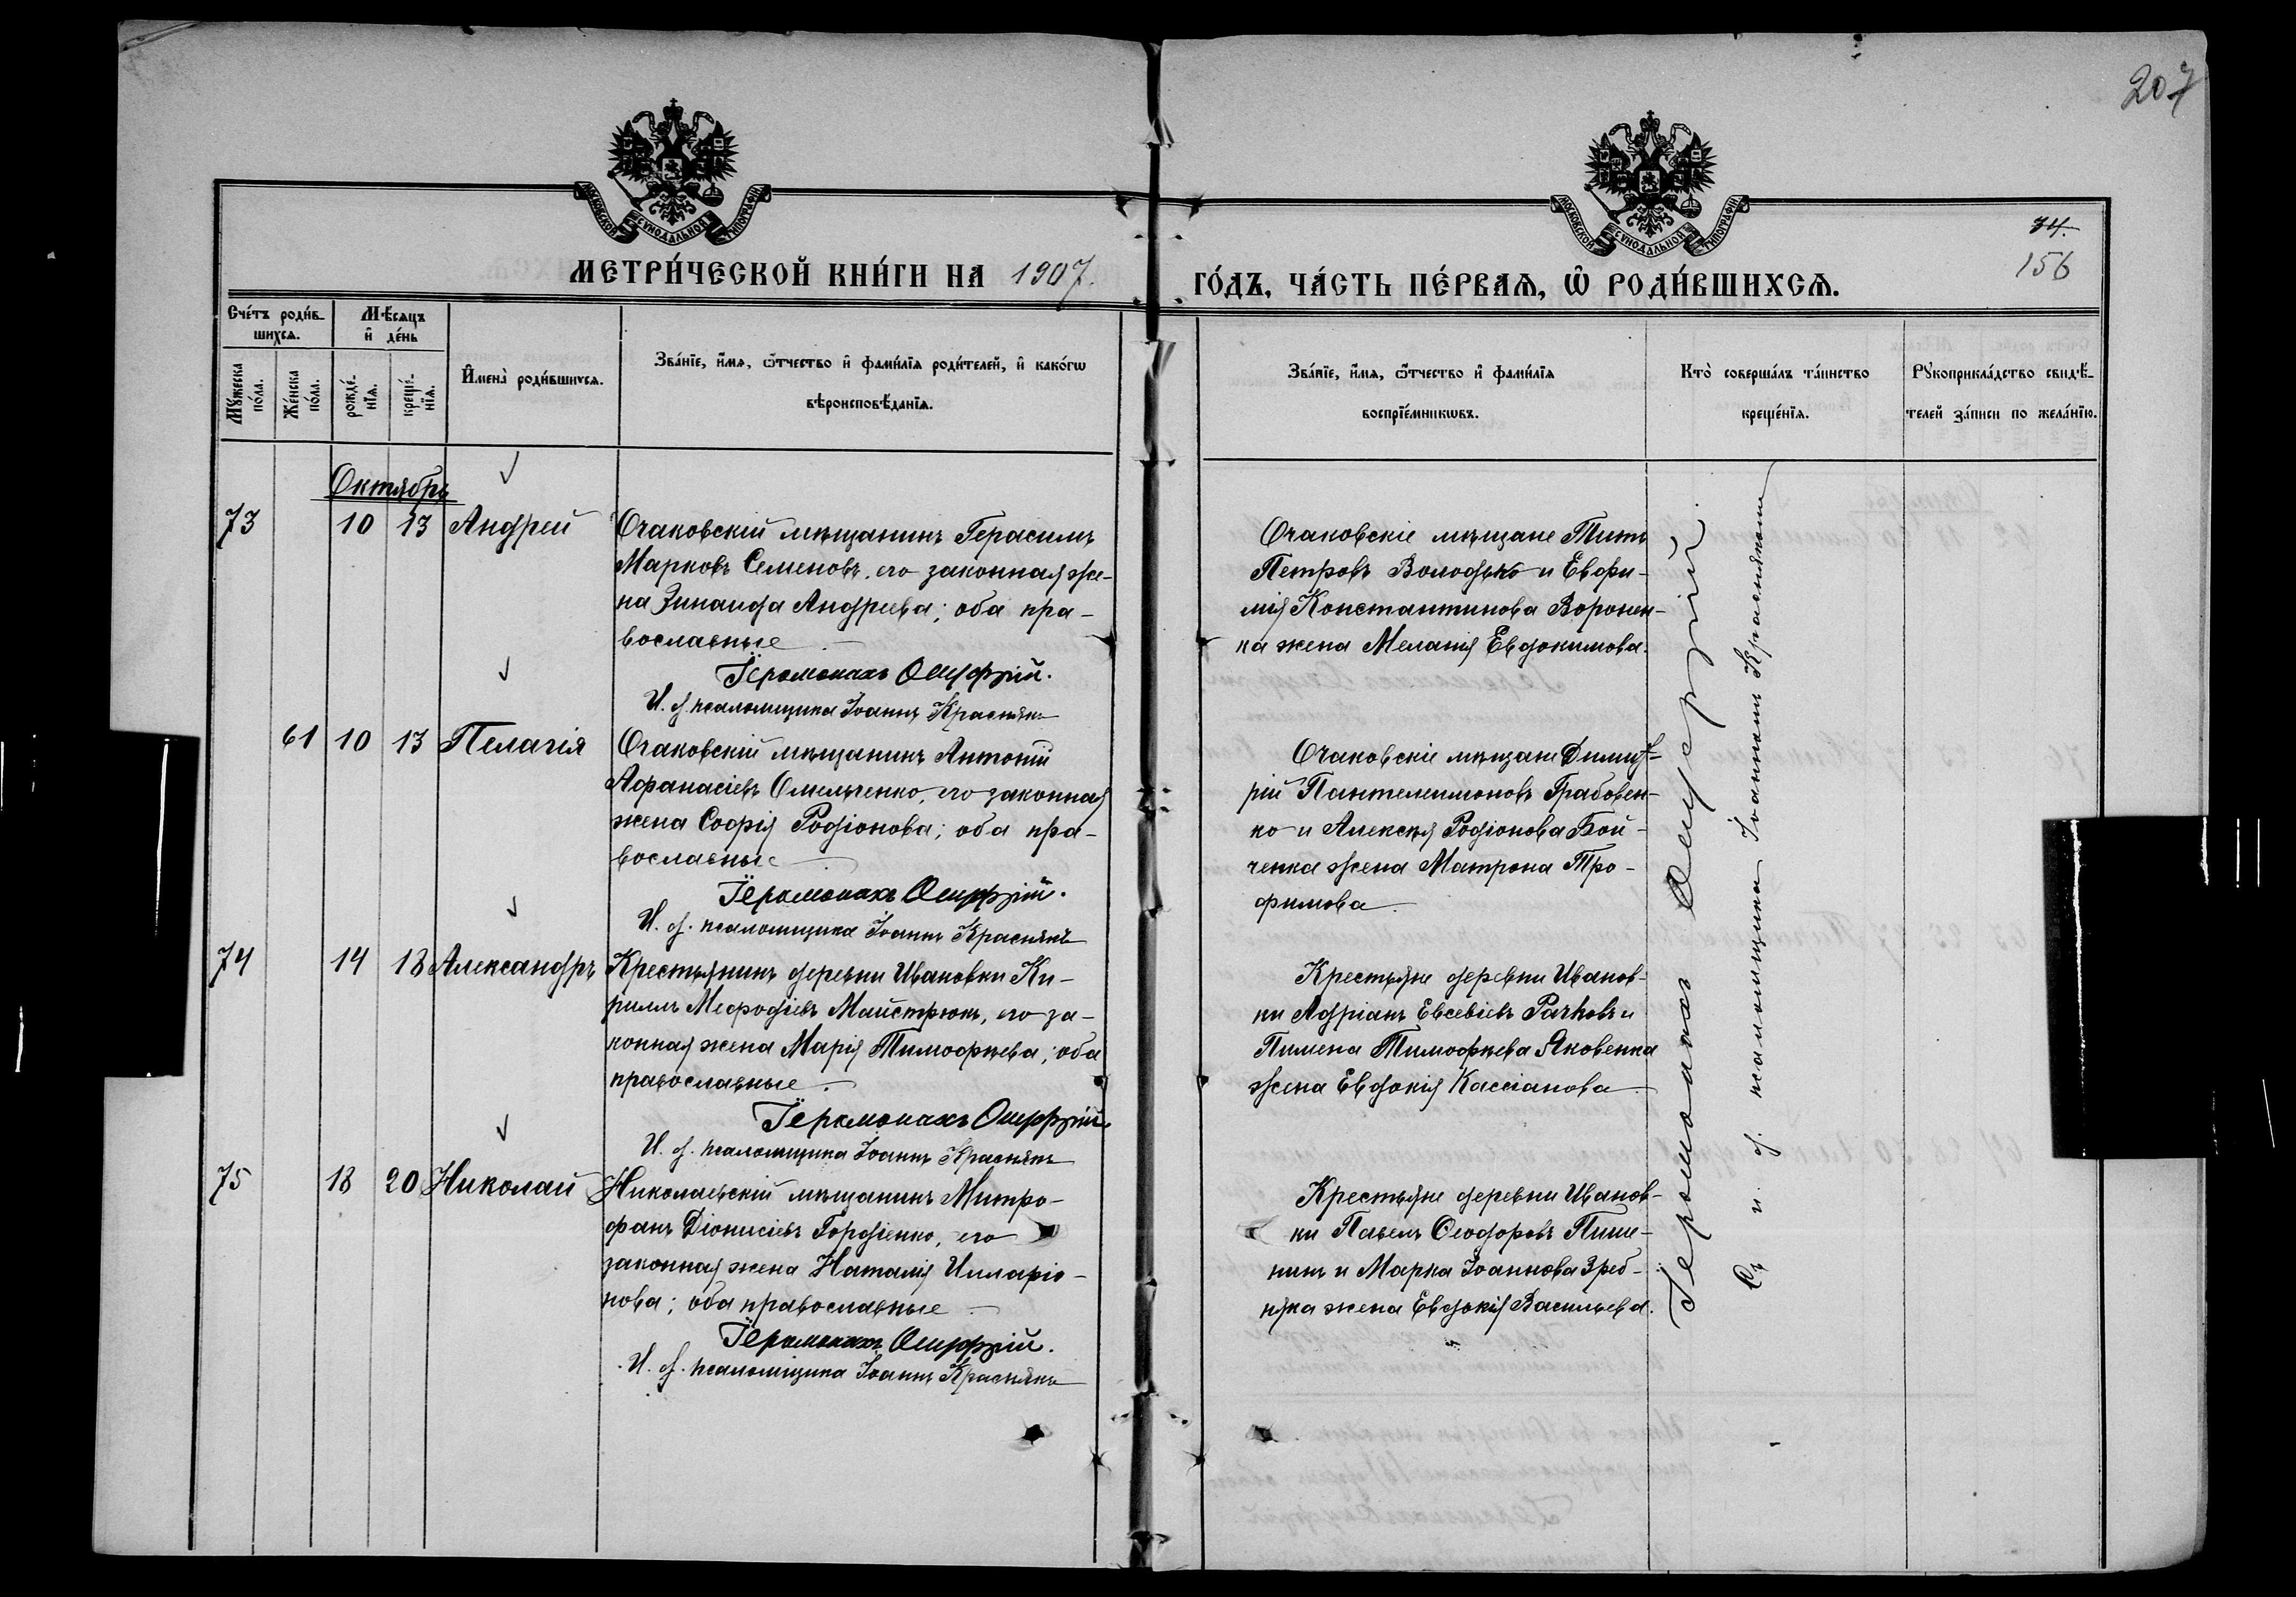 207
МОСКОВСКОЙ СУНОДАЛЬНОЙ ТИПОГРАФІИ
МОСКОВСКОЙ СУНОДАЛЬНОЙ ТИПОГРАФІИ
74.
156
МЕТРИ́ЧЕСКОЙ КНИ́ГИ НА 1907. ГО́ДЪ, ЧА́СТЬ ПЕ́РВАѦ, Ѽ РОДИ́ВШИХСѦ.
Сче́тъ роди́в-
шихся.
Мѣ́сяцъ
и҆ де́нь
Мꙋ́жеска
по́ла.
Же́нска
по́ла.
рожде́-
нїя.
креще́-
нїя.
И҆мена̀ роди́вшихся.
Зва́нїе, и҆́мя, ѻ҆́тчество и҆ фами́лїя роди́телей, и҆ како́гѡ
вѣроисповѣ́данїя.
Зва́нїе, и҆́мя, ѻ҆́тчество и҆ фами́лїя
воспрїе́мникѡвъ.
Кто̀ соверша́лъ та́инство
креще́нїя.
Рꙋкоприкла́дство свидѣ́-
телей за́писи по жела́нїю.
Октябрь
73 10 13 Андрей
Очаковскій мѣщанинъ Герасимъ
Марковъ Семеновъ, его законная же-
на Зинаида Андреева; оба пра-
вославные
Іеромонахъ Онуфрій.
И. д. псаломщика Іоаннъ Краснякъ
Очаковскіе мѣщане Титъ
Петровъ Володько и Евфи-
мія Константинова Воронен-
ка жена Меланія Евдокимова.
61 10 13 Пелагія
Очаковскій мѣщанинъ Антоній
Афанасіевъ Омельченко, его законная
жена Софія Родіонова; оба пра-
вославные
Іеромонахъ Онуфрій.
И. д. псаломщика Іоаннъ Краснякъ
Очаковскіе мѣщане Димит-
рій Пантелеимоновъ Грабовен-
ко и Алексѣя Родіонова Бой-
ченка жена Матрона Тро-
фимова.
74 14 18 Александръ
Крестьянинъ деревни Ивановки Ки-
риллъ Мефодіевъ Майстрюкъ, его за-
конная жена Марія Тимофѣева; оба
православные.
Іеромонахъ Онуфрій.
И. д. псаломщика Іоаннъ Краснякъ
Крестьяне деревни Иванов-
ки Адріанъ Евсевіевъ Рачковъ и
Пимена Тимофѣева Яковенка
жена Евдокія Кассіанова
75 18 20 Николай
Николаевскій мѣщанинъ Митро-
фанъ Діонисіевъ Гордіенко, его
законная жена Наталія Илларіо-
нова; оба православные
Іеромонахъ Онуфрій.
И. д. псаломщика Іоаннъ Краснякъ
Крестьяне деревни Иванов-
ки Павелъ Ѳеодоровъ
и Марка Іоаннова Зреб-
няка жена Евдокія Васильева.
Іеромонахъ Онуфрій.
Съ и. д. псаломщика Іоанномъ Краснякомъ